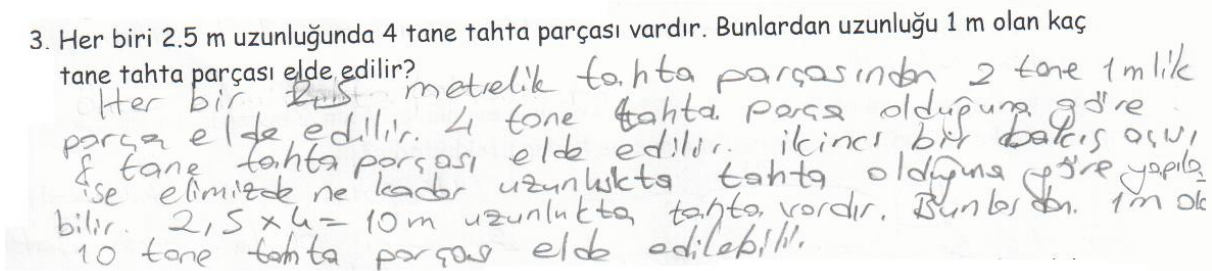 3. Her biri 2.5 m uzunluğunda 4 tane tahta parçası vardır. Bunlardan uzunluğu 1 m olan kaç
tane tahta parçası elde edilir?
Her bir 2,5 metrelik tahta parçasından 2 tane 1 mlik
parça elde edilir. 4 tane tahta parça olduğuna göre
8 tane tahta parçası elde edilir. ikincı bir bakış açısı
ise elimizde ne kadar uzunlukta tahta olduğuna göre yapıla
bilir. 2,5 x 4 = 10 m uzunlukta tahta vardır. Bunlardan. 1m ola
10 tane tahta parçası elde edilebilir.